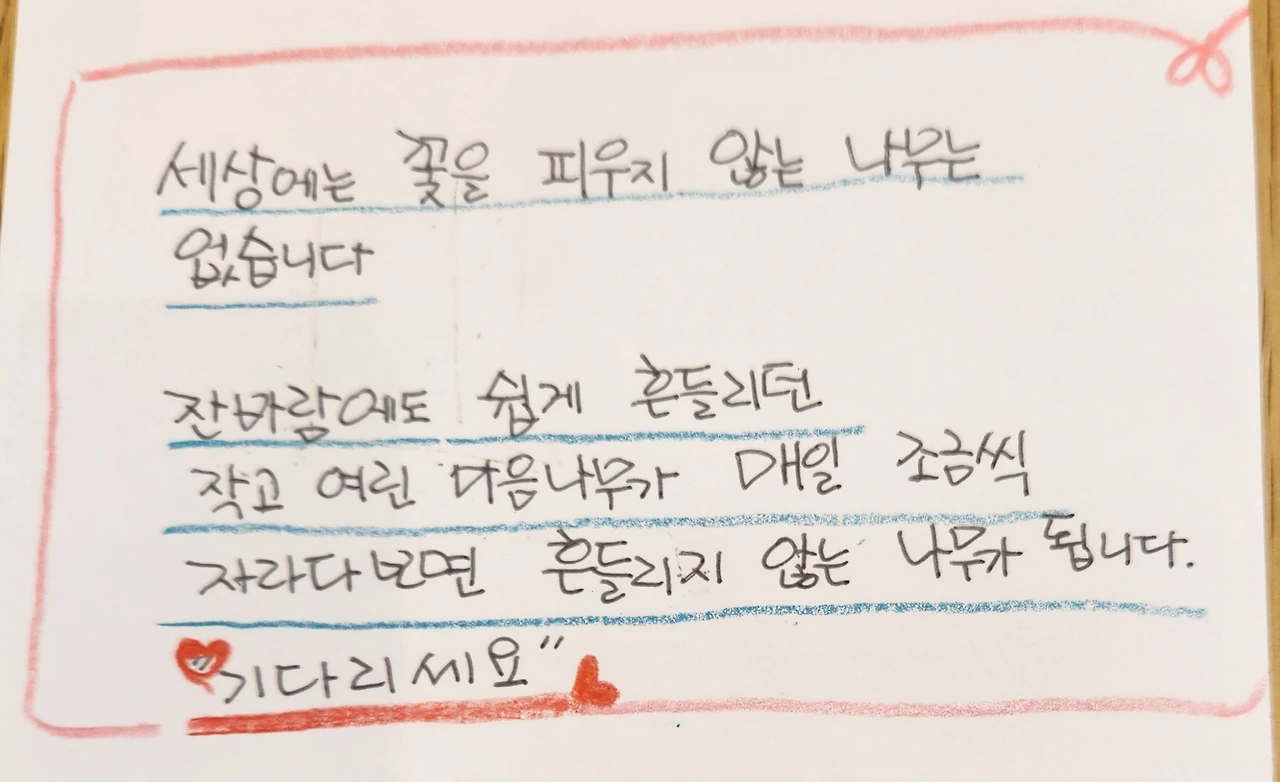 세상에는 꽃을 피우지 않는 나무는
없습니다
잔바람에도 쉽게 흔들리던
작고 여린 마음나무가 매일 조금씩
자라다보면 흔들리지 않는 나무가 됩니다.
"기다리세요"